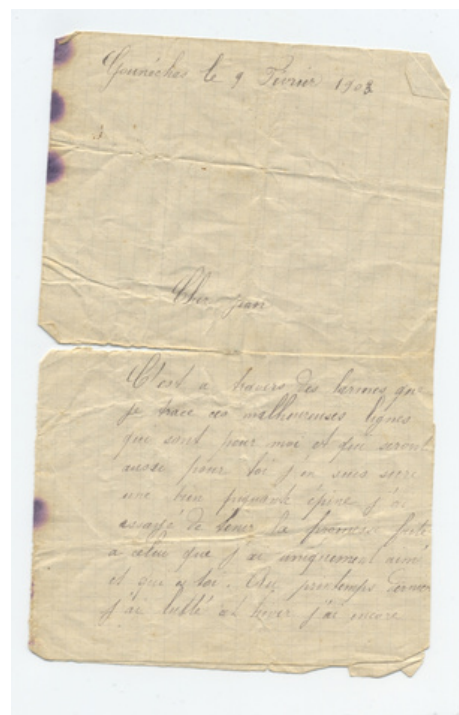 Gounêches le 9 Février 1903
Cher jean
C'est a travers des larmes que
je trace ces malheureuses lignes
qui sont pour moi et qui seront
aussi pour toi j'en suis sure
une bien piquante épine j'ai
essayé de tenir la promesse faite
a celui que j'ai uniquement aimé
et que toi. Au printemps dernier
j'ai lutté cet hiver j'ai encore